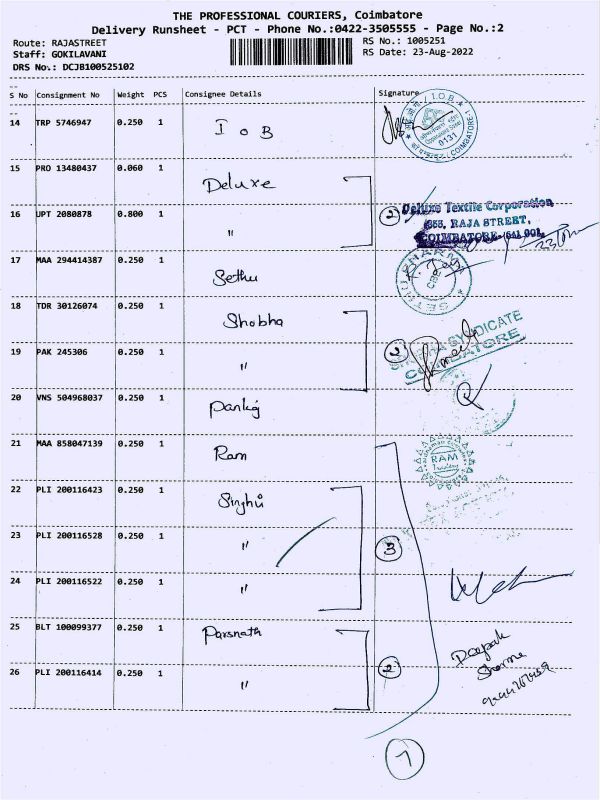 THE PROFESSIONAL COURIERS, Coimbatore
Delivery Runsheet - PCT - Phone No.:0422-3505555 - Page No.:2
Route: RAJASTREET
Staff: GOKILAVANI
DRS No.: DCJB100525102
RS No.: 1005251
RS Date: 23-Aug-2022
S No Consignment No Weight PCS Consignee Details Signature
14 TRP 5746947 0.250 1 I O B
I.O.B.
0131
COIMBATORE
15 PRO 13480437 0.060 1 Deluxe
16 UPT 2080878 0.800 1 "
2
Deluxe Textile Corporation
355, RAJA STREET,
COIMBATORE-641 001.
17 MAA 294414387 0.250 1 Sethu
SETHU PHARM
18 TDR 30126074 0.250 1 Shobha
19 PAK 245306 0.250 1 "
2
SYNDICATE
COIMBATORE
20 VNS 504968037 0.250 1 Pankaj
21 MAA 858047139 0.250 1 Ram
RAM
22 PLI 200116423 0.250 1 Singhvi
23 PLI 200116528 0.250 1 "
3
24 PLI 200116522 0.250 1 "
25 BLT 100099377 0.250 1 Parsnath
26 PLI 200116414 0.250 1 "
2
Deepak
Sharma
7